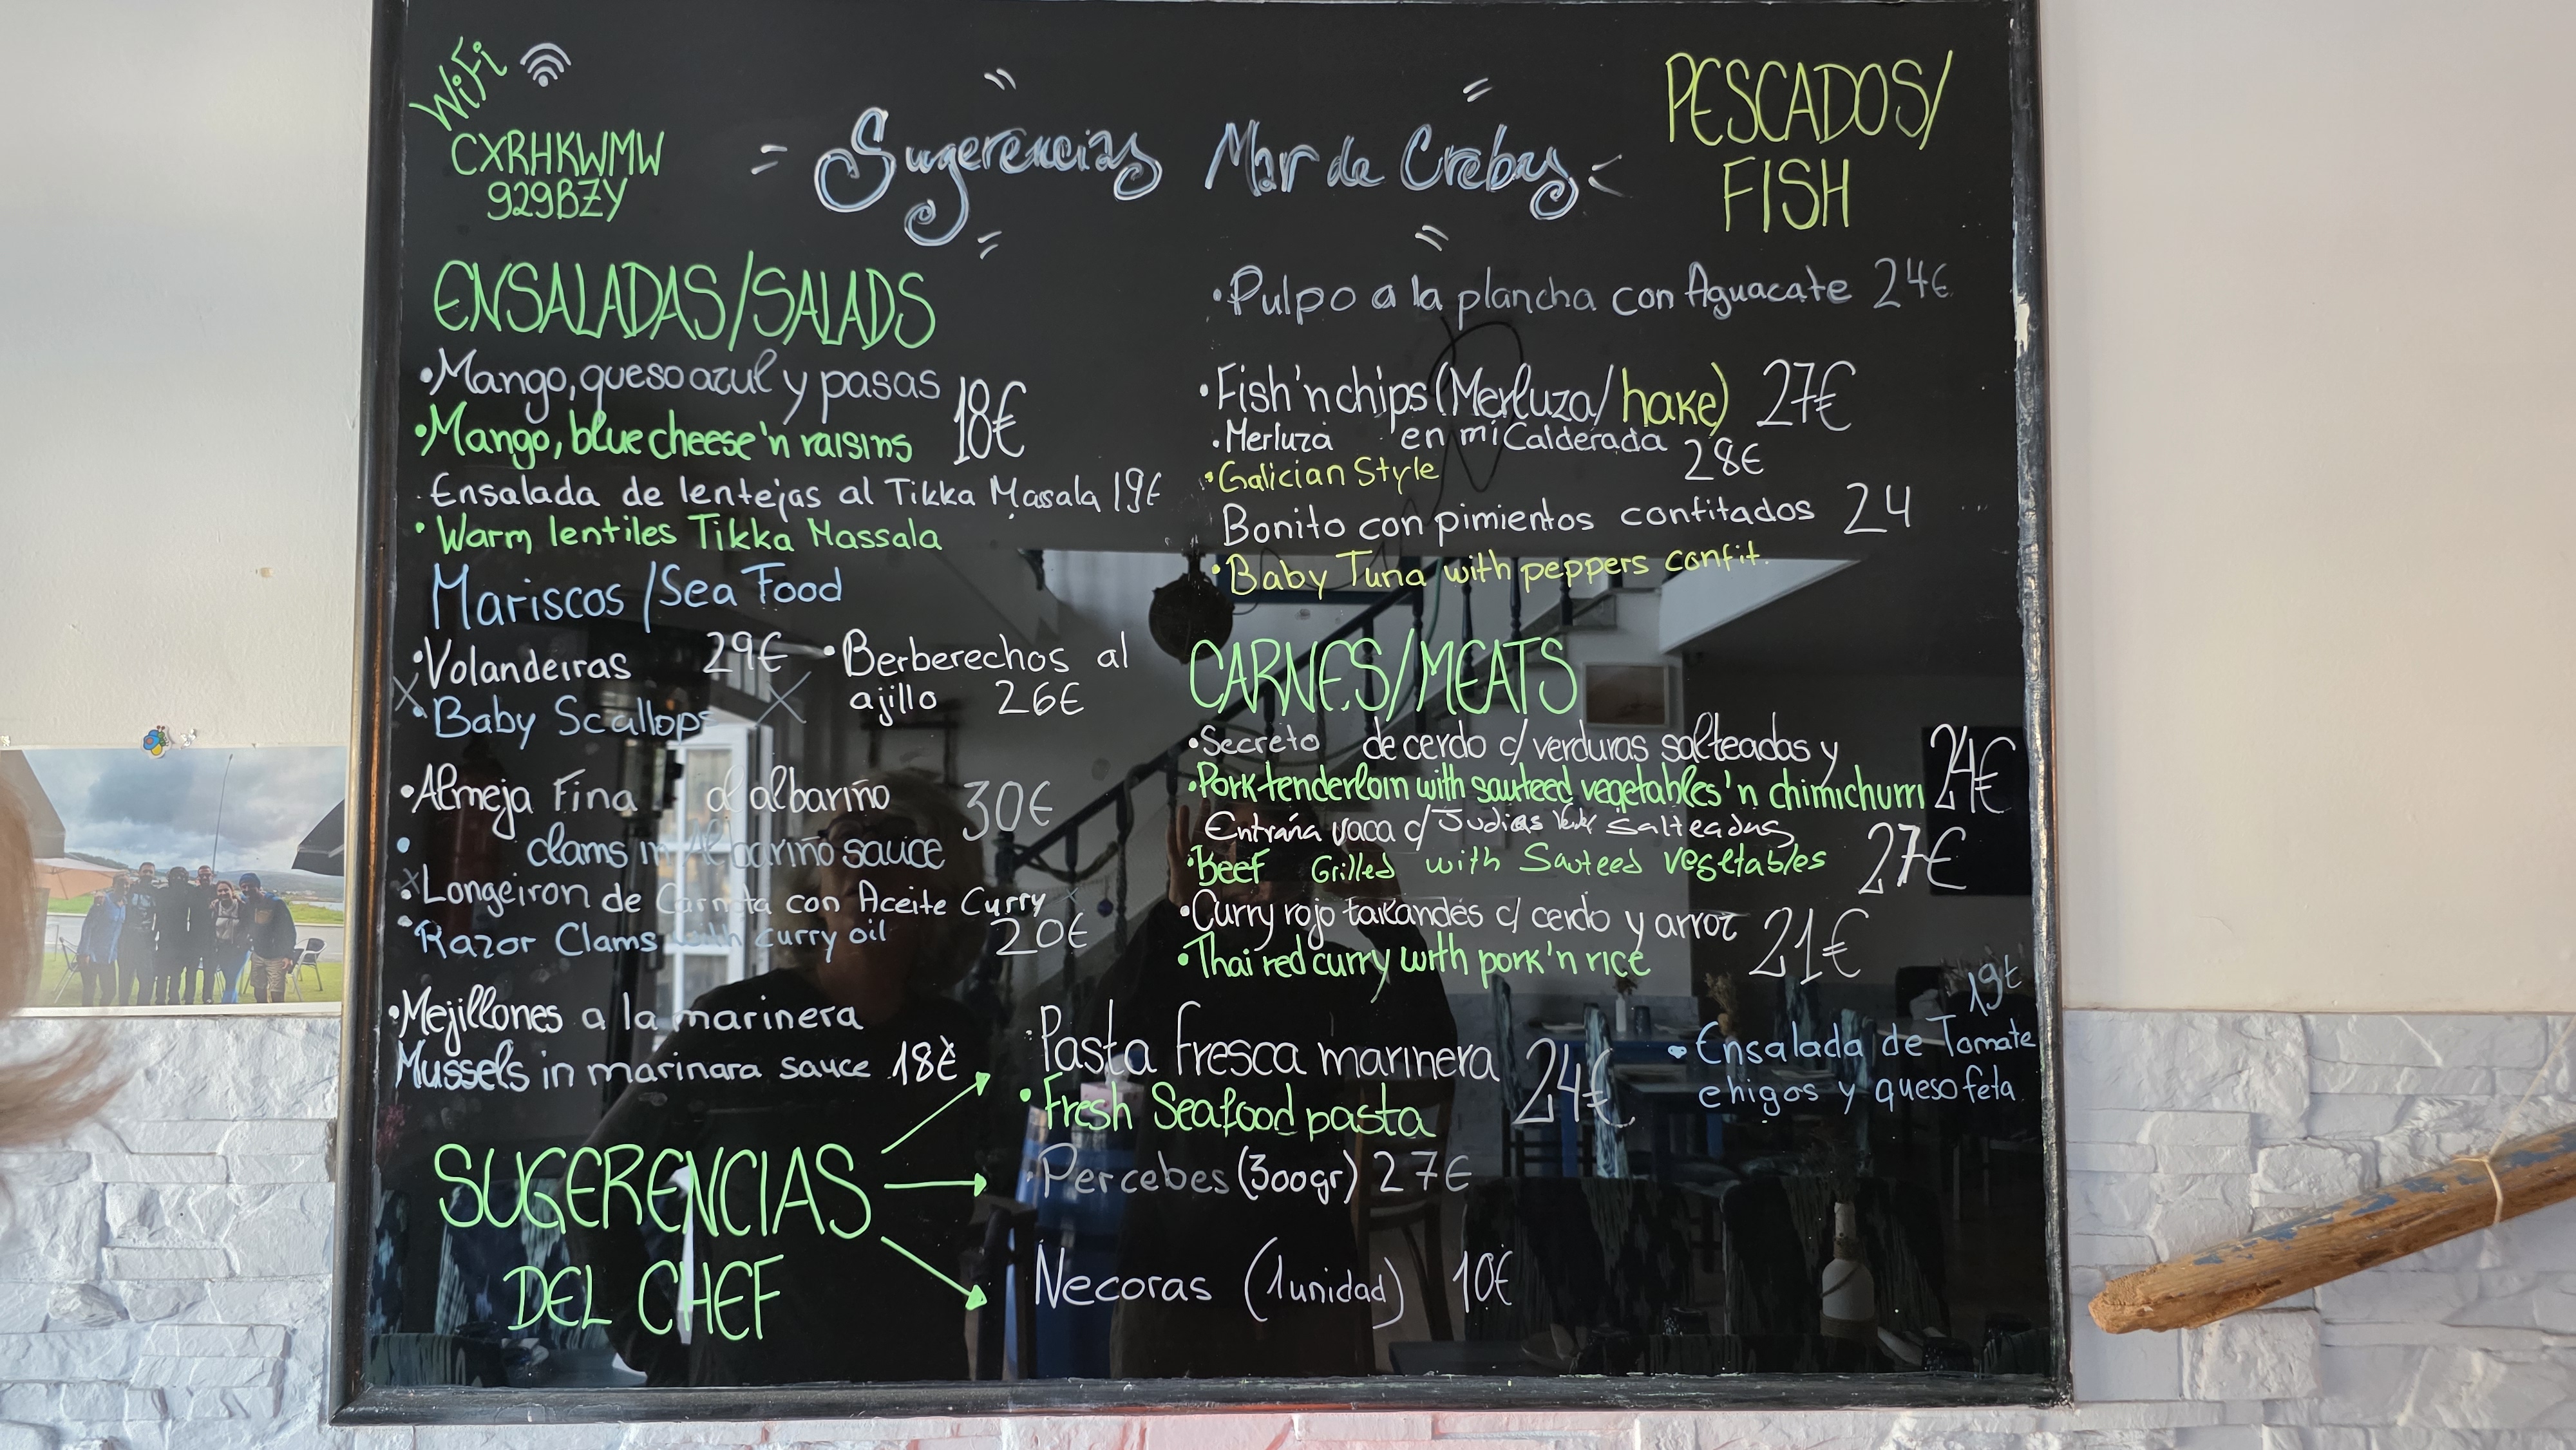 WiFi
CXRHKWMW
929BZY
Sugerencias Mar de Crebas
PESCADOS/
FISH
ENSALADAS/SALADS
•Mango, queso azul y pasas
•Mango, blue cheese 'n raisins 18€
Ensalada de lentejas al Tikka Masala 19€
•Warm lentiles Tikka Massala
Mariscos / Sea Food
•Volandeiras 29€
•Baby Scallops
•Berberechos al
ajillo 26€
•Almeja Fina al albariño 30€
• clams in Albariño sauce
•Longeiron de Carnota con Aceite Curry
•Razor Clams with curry oil 20€
•Mejillones a la marinera
Mussels in marinara sauce 18€
•Pulpo a la plancha con Aguacate 24€
•Fish 'n chips (Merluza/hake) 27€
•Merluza en mi Calderada 28€
•Galician Style
Bonito con pimientos confitados 24
•Baby Tuna with peppers confit.
CARNES/MEATS
•Secreto de cerdo c/ verduras salteadas y
•Pork tenderloin with sauteed vegetables 'n chimichurri 24€
Entraña vaca c/ Judias salteadas
•Beef Grilled with Sauteed vegetables 27€
•Curry rojo tailandés c/ cerdo y arroz
•Thai red curry with pork 'n rice 21€
SUGERENCIAS
DEL CHEF
•Pasta fresca marinera 24€
•Fresh Seafood pasta
•Percebes (300gr) 27€
Necoras (1unidad) 10€
19€
•Ensalada de Tomate
e higos y queso feta